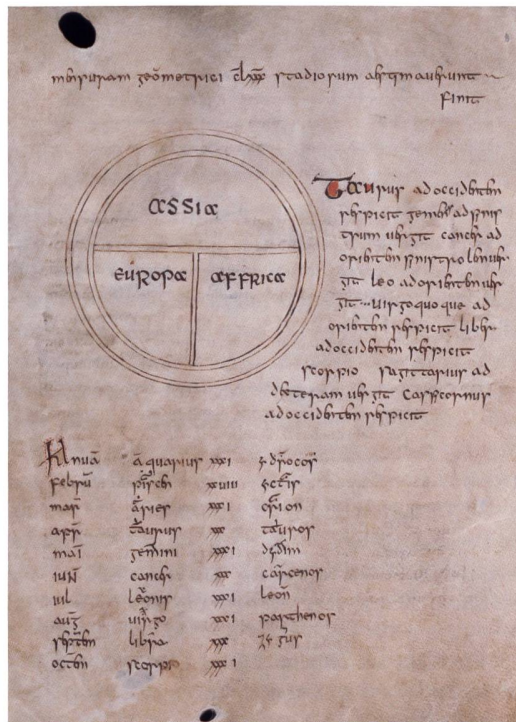 mensuram geometrici clxxx stadiorum aestimauerunt
Finit
ASSIA
EUROPA AFFRICA
Taurus ad occidentem
respicit gemens ad sinis
trum uergit cancer ad
orientem sinistro lenuer
git leo ad orientem uer
git uirgo quoque ad
orientem respicit liber
ad occidentem respicit
scorpio sagittarius ad
dexteram uergit Caspcornus
ad occidentem respicit
Anuā aquarius xxxi
Febru piscen xxuiii
mar aries xxxi
apr taurus xxx tauros
mai gemini xxxi
iun cancer xxx carcenos
iul leonis xxxi leon
aug uirgo xxxi parthenos
septen libra xxx
octen scorpi xxxi